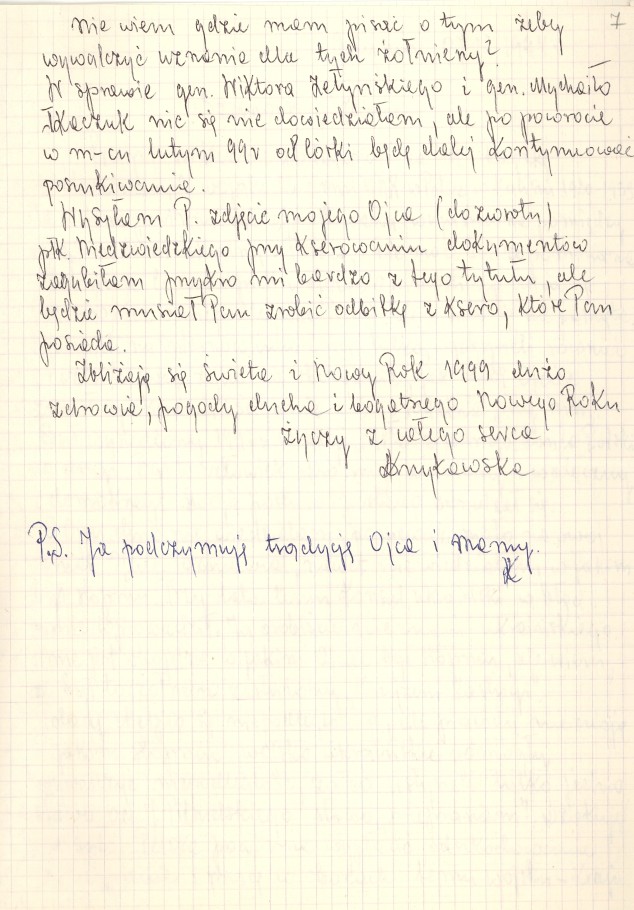 7
Nie wiem gdzie mam pisać o tym żeby
wywalczyć uznanie dla tych żołnierzy?
W sprawie gen. Wiktora Zełyńskiego i gen. Mychaiło
Tkaczuk nic się nie dowiedziałam, ale po powrocie
w m-cu lutym 99r od córki będę dalej kontynuować
poszukiwania.
Wysyłam P. zdjęcie mojego Ojca (do zwrotu)
płk. Niedzwiedzkiego przy kserowaniu dokumentów
zagubiłam przykro mi bardzo z tego tytułu, ale
będzie musiał Pan zrobić odbitkę z ksero, które Pan
posiada.
Zbliżają się święta i Nowy Rok 1999 dużo
zdrowia, pogody ducha i bogatnego Nowego Roku
życzy z całego serca
P.S. Ja podczymuję tradycję Ojca i Mamy.